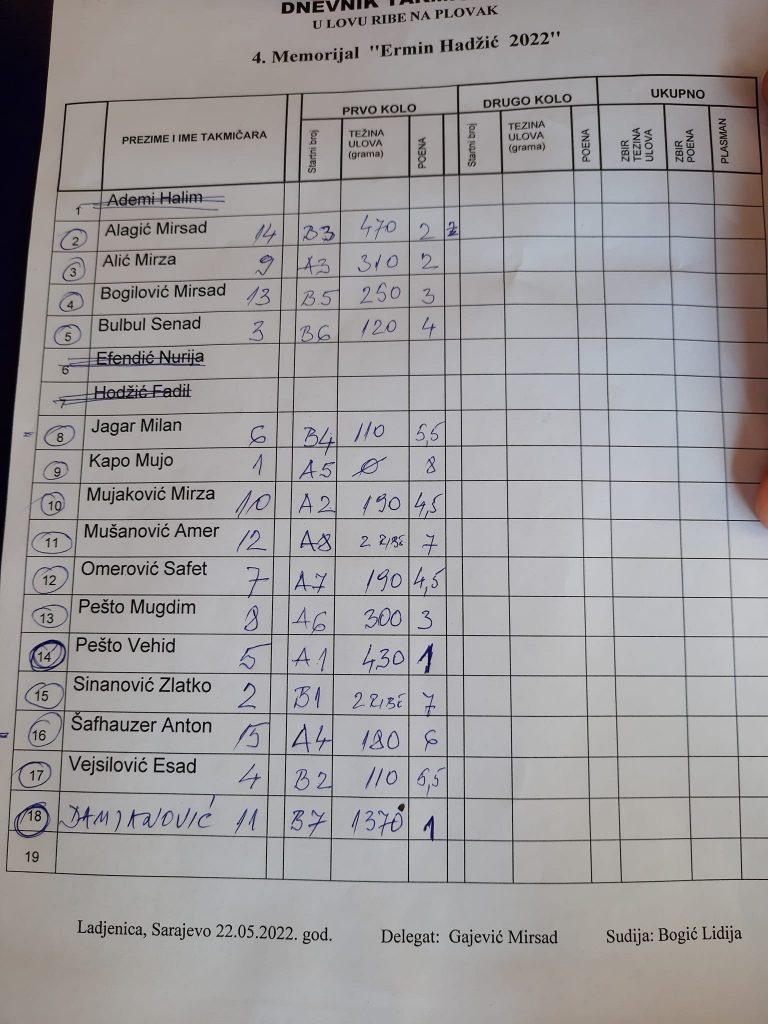 DNEVNIK
U LOVU RIBE NA PLOVAK
4. Memorijal "Ermin Hadžić 2022"
PREZIME I IME TAKMIČARA PRVO KOLO DRUGO KOLO UKUPNO
Startni broj TEŽINA ULOVA (grama) POENA Startni broj TEZINA ULOVA (grama) POENA ZBIR TEZINA ULOVA ZBIR POENA PLASMAN
1 Ademi Halim
2 Alagić Mirsad 14 B3 470 2 2
3 Alić Mirza 9 A3 310 2
4 Bogilović Mirsad 13 B5 250 3
5 Bulbul Senad 3 B6 120 4
6 Efendić Nurija
7 Hodžić Fadil
= 8 Jagar Milan 6 B4 110 5,5
9 Kapo Mujo 1 A5 0 8
10 Mujaković Mirza 10 A2 190 4,5
11 Mušanović Amer 12 A8 2 RIBE 7
12 Omerović Safet 7 A7 190 4,5
13 Pešto Mugdim 8 A6 300 3
14 Pešto Vehid 5 A1 430 1
15 Sinanović Zlatko 2 B1 2 RIBE 7
= 16 Šafhauzer Anton 15 A4 180 6
17 Vejsilović Esad 4 B2 110 5,5
18 DAMJANOVIĆ 11 B7 1370 1
19
Ladjenica, Sarajevo 22.05.2022. god. Delegat: Gajević Mirsad Sudija: Bogić Lidija